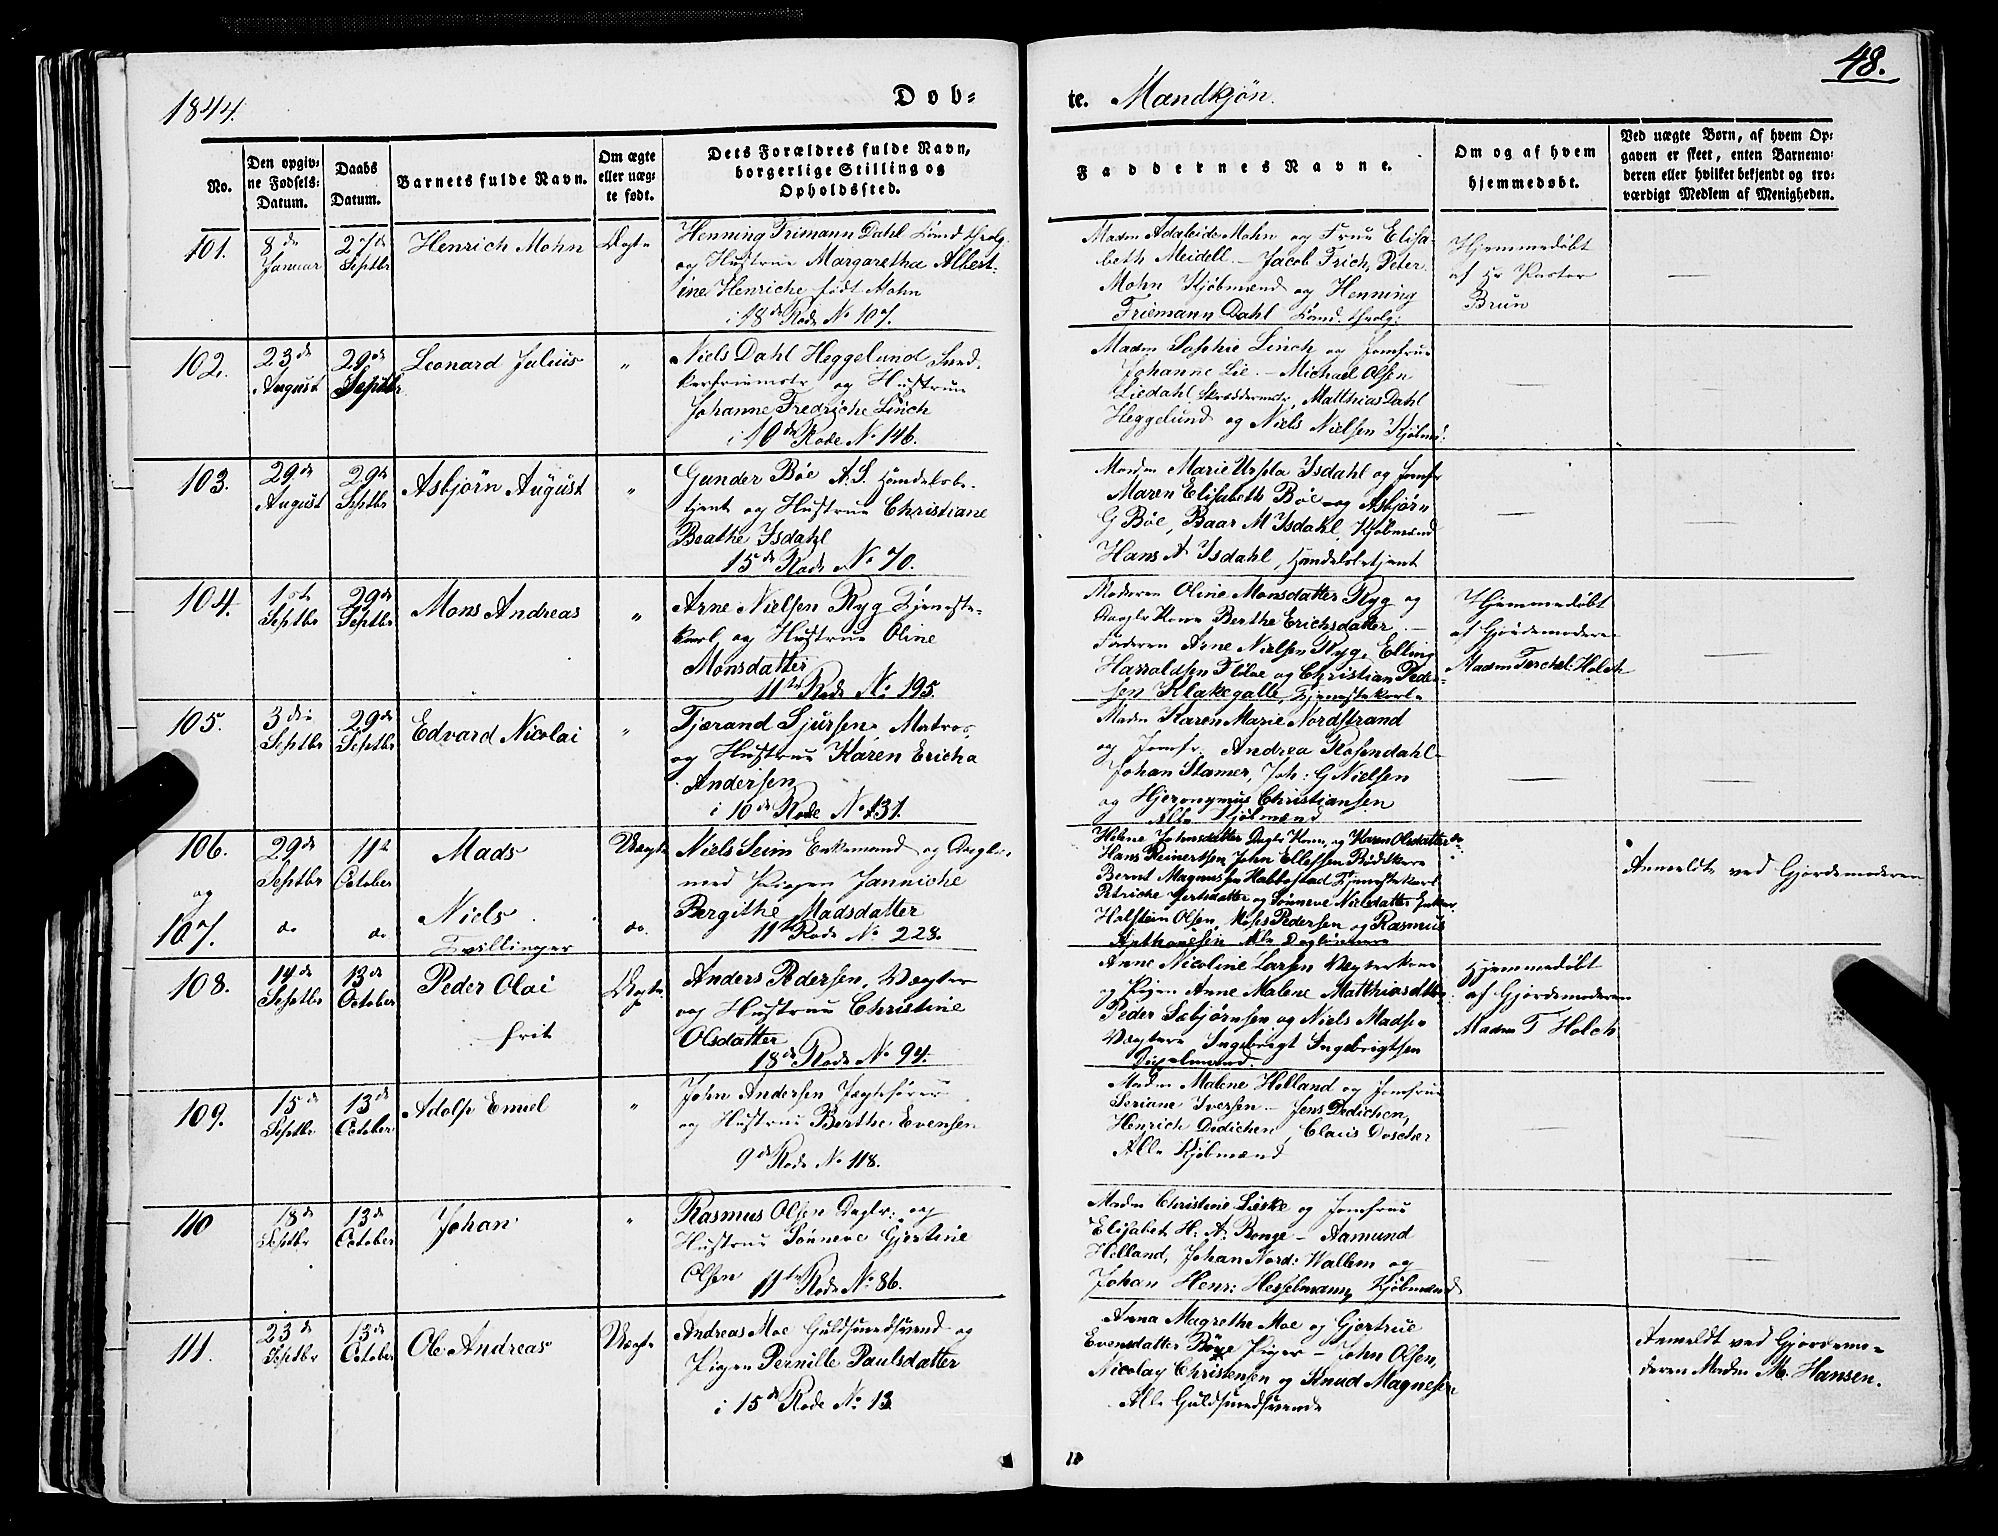 1844.
Døb-
te. Mandkjøn.
48.
No.
Den opgiv-
ne Fødsels-
Datum.
Daabs
Datum.
Barnets fulde Navn.
Om ægte
eller uæg-
te født.
Dets Forældres fulde Navn,
borgerlige Stilling og
Opholdssted.
Faddernes Navne.
Om og af hvem
hjemmedøbt.
Ved uægte Børn, af hvem Op-
gaven er skeet, enten Barnemo-
deren eller hvilket bekjendt og tro-
værdigt Medlem af Menigheden.
101.
8de
Januar
27de
Septbr
Henrich Mohn
Ægte
Henning Frimann Dahl Cand theolg.
og Hustrue Margaretha Albert-
ine Henriche født Mohn
i 18de Rode No 107.
Madm Adaleide Mohn og Frue Elisa-
beth Meidell - Jacob Frich, Peter
Mohn Kjøbmænd og Henning
Friemann Dahl Cand. theolg:
Hjemmedøbt
af Hr Pastor
Brun
—
102.
23de
August
29de
Septbr
Leonard Julius
"
Niels Dahl Heggelund Sned-
kersvendmstr og Hustrue
Johanne Fredriche Linch
i 10de Rode No 146.
Madm Sophie Linch og Jomfrue
Johanne Lie. - Michael Olsen
Liedahl Skræddermstr, Matthias Dahl
Heggelund og Niels Nielsen Kjøbmd:
—
—
103.
29de
August
29de
Septbr
Asbjørn August
"
Gunder Bøe A.S. Handelsbe-
tjent og Hustrue Christiane
Beathe Isdahl
15de Rode No 70.
Madm Marie Ursula Isdahl og Jomfr
Maren Elisabeth Bøe - og Asbjørn
G Bøe, Baar M Isdahl, Kjøbmænd
Hans A Isdahl, Handelsbetjent
—
—
104.
1ste
Septbr
29de
Septbr
Mons Andreas
"
Arne Nielsen Ryg Tjeneste-
karl, og Hustrue Oline
Monsdatter
11te Rode No 195.
Moderen Oline Monsdatter Ryg og
Dagler Kone Berthe Erichsdatter —
Faderen Arne Nielsen Ryg, Elling
Harroldsen Fløtve og Christian Peder-
sen Klakegalle, Tjenestekarle
Hjemmedøbt
af Gjordemoderen
Madm Terchel: Holch
—
105.
3die
Septbr
29de
Septbr
Edvard Nicolai
"
Tjerand Sjursen Matros
og Hustrue Karen Ericha
Andersen
i 10de Rode No 131.
Madm Karen Marie Nordstrand
og Jomfr. Andrea Rosendahl -
Johan Stamer, Joh: G Nielsen
og Hjeronymus Christiansen
Alle Kjøbmænd
—
—
106.
og
107.
29de
Septbr
do
11te
October
do
Mads
Niels
Tvillinger
Uægte
do.
Niels Seim Enkemand og Dagler.
med Pigen Janniche
Bergithe Madsdatter
11te Rode No. 228.
Helene Johnsdatter Dagle Kone, og Karen Olsdatter do:
Hans Reinertsen, John Ellefsen Bødtkere
Bernt Magnussen Habbestad Tjenestekarl
Petriche Gertsdatter og Sønneve Nielsdatter Enker.
Halstein Olsen, Moses Pedersen og Rasmus
Anthonesen Alle Dagleiere
Anmeldt ved Gjordemoderen
108.
14de
Septbr
13de
October
Peder Olai
frit
Ægte
Anders Pedersen, Vægter
og Hustrue Christine
Olsdatter
18de Rode No 94.
Anne Nicoline Larsen Vægterkone
og Pigen Anne Malene Matthiasdtter
Peder Sæbjørnsen og Niels Madsen
Vægtere Ingebrigt Ingebrigtsen
Hjemmedøbt
af Gjordemoderen
Madm T Holch
109.
15de
Septbr
13de
October
Adolph Emiel
"
John Andersen Jægtefører
og Hustrue Berthe Evensen
9de Rode No 118.
Madm Malene Helland og Jomfrue
Seriane Iversen - Jens Dedichen,
Henrich Dedichen, Claus Doscher
Alle Kjøbmænd
—
—
110
18de
Septbr
13de
October
Johan
"
Rasmus Olsen Daglr: og
Hustrue Sønneve Gjertine
Olsen 11te Rode No 86.
Madm Christine Lieske og Jomfrue
Elisabet H: A: Bonge - Aamund
Helland, Johan Nord: Wallem og
Johan Henr: Hesselmann, Kjøbmænd
—
—
111.
23de
Septbr
13de
October
Ole Andreas
Uægte
Andreas Moe Guldsmedsvend og
Pigen Pernille Paulsdatter
i 15de Rode No 13
Anna Magrethe Moe og Gjertrue
Evensdatter Bøye Piger - John Olsen,
Nicolay Christensen og Knud Magnesen
Alle Guldsmedsvende
Anmeldt ved Gjordemo-
deren Madm M. Hansen.